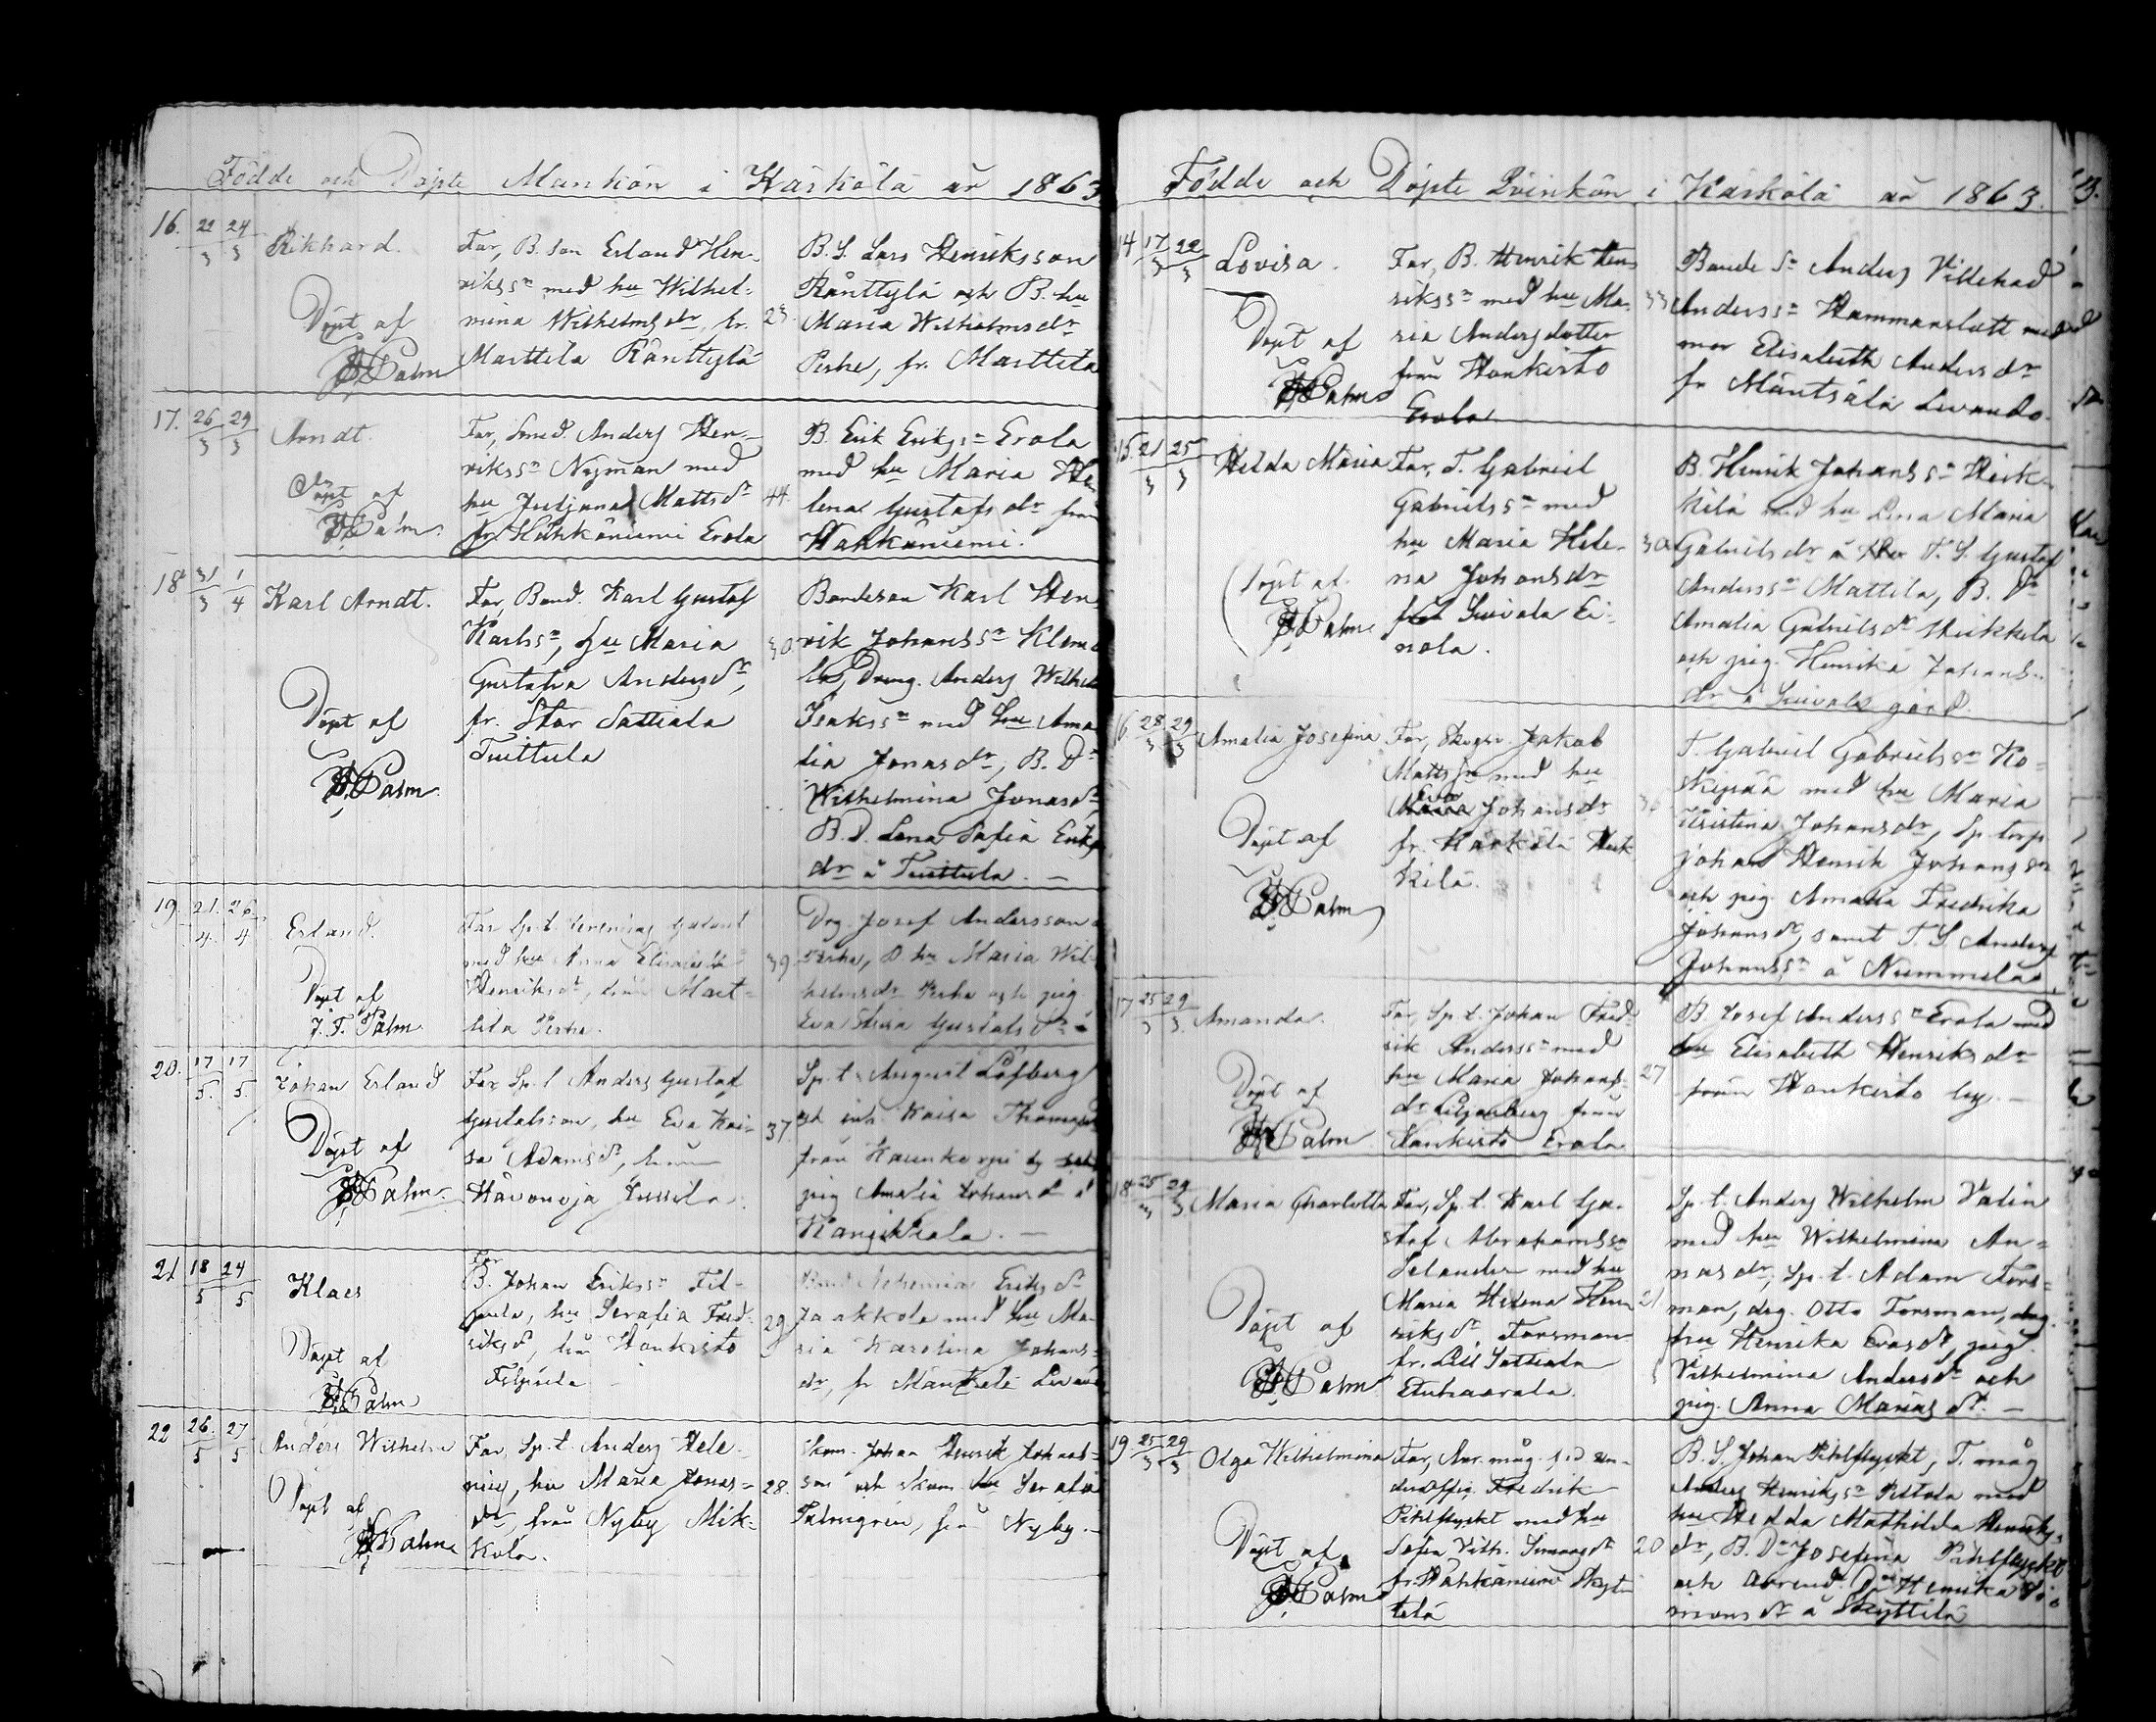 Födde och Döpte Mankön i Kärkölä år 1863
16. 22/3 24/3 Rikhard.
Döpt af
Palm
Far, B. son Erland Hen-
rikss n med hu Wilhel-
mina Wilhelmsdr, fr.
Marttila Ränttylä
23.
B. S. Lars Henriksson
Ränttylä och B. hu
Maria Wilhelmsdr
Perhe, fr. Marttila
17. 26/3 29/3 Arndt.
Döpt af
Palm.
Far, Smed. Anders Hen-
rikss n Nyman med
hu Justjana Mattsdr
fr Hähkäniemi Erola
44.
B. Erik Erikss n Erola
med hu Maria He-
lena Gustafsdr från
Hähkäniemi.
18. 31/3 1/4 Karl Arndt.
Döpt af
Palm.
Far, Bond. Karl Gustaf
Karlss n, hu Maria
Gustafva Andersdr,
fr. Stor Sattiala
Tuittula
30.
Bondeson Karl Hen-
rik Johanss n Klem
Dreng. Anders Wilhelm
Isakss n med hu Ama
lia Jonasdr, B. Dr
Wilhelmina Jonasdr
B. D. Lena Sofia Eriks
dr å Tuittula. —
19. 21./4. 26./4 Erland.
Döpt af
J. F. Palm
Far Sp. t.
med hu Anna Elisabeth
Henriksdr, från Mart-
tila Perhe.
39.
Drg. Josef Andersson
Perhe, B hu Maria Wil-
helmsdr Perhe och pig.
Eva Stina Gustafsdr
20. 17/5. 17/5. Johan Erland
Döpt af
Palm.
Far Sp. t Anders Gustaf
Gustafsson, hu Eva Kai-
sa Adamsdr, från
Hävonoja Jussila.
37.
Sp. t. August Löfberg
och inh. Kaisa Thomasdr
från Haunkorpi by
pig Amalia Johansdr
Kangiskiala. —
21 18/5 24/5 Klaes
Döpt af
Palm
Far
B. Johan Erikss n Fil-
pula, hu Serafia Fred-
riksdr, från Hankisto
Filpula
29
Nehemia Eriks
Jaakkola med hu Ma-
ria Karolina Johans-
dr, fr Mäntsälä Levan
22 26./5 27/5 Anders Wilhelm
Döpt af
Palm
Far, Sp. t. Anders Hele-
nius, hu Maria Jonas-
dr, från Nyby Mik-
kola.
28.
Skom. Johan Henrik Johans-
son och skom. hu Serafia
Palmgren, från Nyby. —
Födde och Döpte Qvinkön i Kärkölä år 1863.
14 17/3 22/3 Lovisa.
Döpt af
Palm
Far, B. Henrik Hen-
rikss n med hu Ma-
ria Andersdotter
från Hankisto
Erola
33
Bonde Sn Anders Villehad
Anderss n Hammarslätt med
mor Elisabeth Andersdr
fr Mäntsälä Levando.
15. 21/3 25/3 Helda Maria
Döpt af
Palm
Far, T. Gabriel
Gabrielss n med
hu Maria Hele-
na Johansdr
Suivala Ei-
nola.
30
B. Henrik Johanss n Heik-
kilä med hu Lena Maria
Gabrielsdr å T. S. Gustaf
Anderss n Mattila, B. Dr
Amalia Gabrielsdr Heikkilä
och pig. Henrika Johans-
dr å Suivala gård.
16. 28/3 29/3 Amalia Josefina
Döpt af
Palm
Far, Skogsv. Jakob
Mattss n med hu
Eva Johansdr
fr. Kärkölä Heik
kilä.
T. Gabriel Gabrielss n Ko-
skipää med hu Maria
Kristina Johansdr, Sp. torp
Johan Henrik Johanss n
och pig. Amalia Fredrika
Johansdr, samt T. S. Anders
Johanss n å Nummela
17 25/3 29/3. Amanda.
Döpt af
Palm
Far, Sp. t. Johan Fred-
rik Anderss n med
hu Maria Johans-
dr Liljanberg från
Hankisto Erola
27
B. Josef Anderss n Erola med
hu Elisabeth Henriksdr
från Hankisto by. —
18 25/3 29/3. Maria Charlotta
Döpt af
Palm.
Far, Sp. t. Karl Gu-
staf Abrahamss n
Selander med hu
Maria Helena Hen
riksdr Forsman
fr. Lill Sattiala
Anhaarala.
21
Sp. t. Anders Wilhelm Valin
med hu Wilhelmina An-
nasdr, Sp. t. Adam Fors-
man, drg. Otto Forsman, drg.
hu Henrika Evasdr, pig.
Vilhelmina Andersdr och
pig. Anna Mariasdr. —
19 25/3 29/3 Olga Wilhelmina
Döpt af
Palm
Far, Arr. måg. f. d. un-
deroffic. Fredrik
Pihlflyckt med hu
Sofia Vilh. Simonsdr
fr. Hähkäniemi Skyt-
tilä
20
B. S. Johan Pihlflyckt, T. måg
Anders Henrikss n Pietola med
hu Hedda Mathilda Henriks-
dr, B. Dr Josefina Pihlflyckt
och Arrend. Dr Henrika Si-
monsdr å Skyttilä